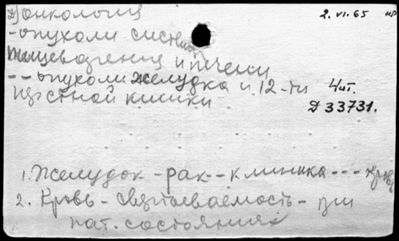 Онкология 2.VI.65
- опухоли системы
пищеварения и печени
-- опухоли желудка и 12-ти
перстной кишки Чит.
Д 33731.
1. Желудок - рак -- клиника ---
2. Кровь - свертываемость - при
пат. состояниях